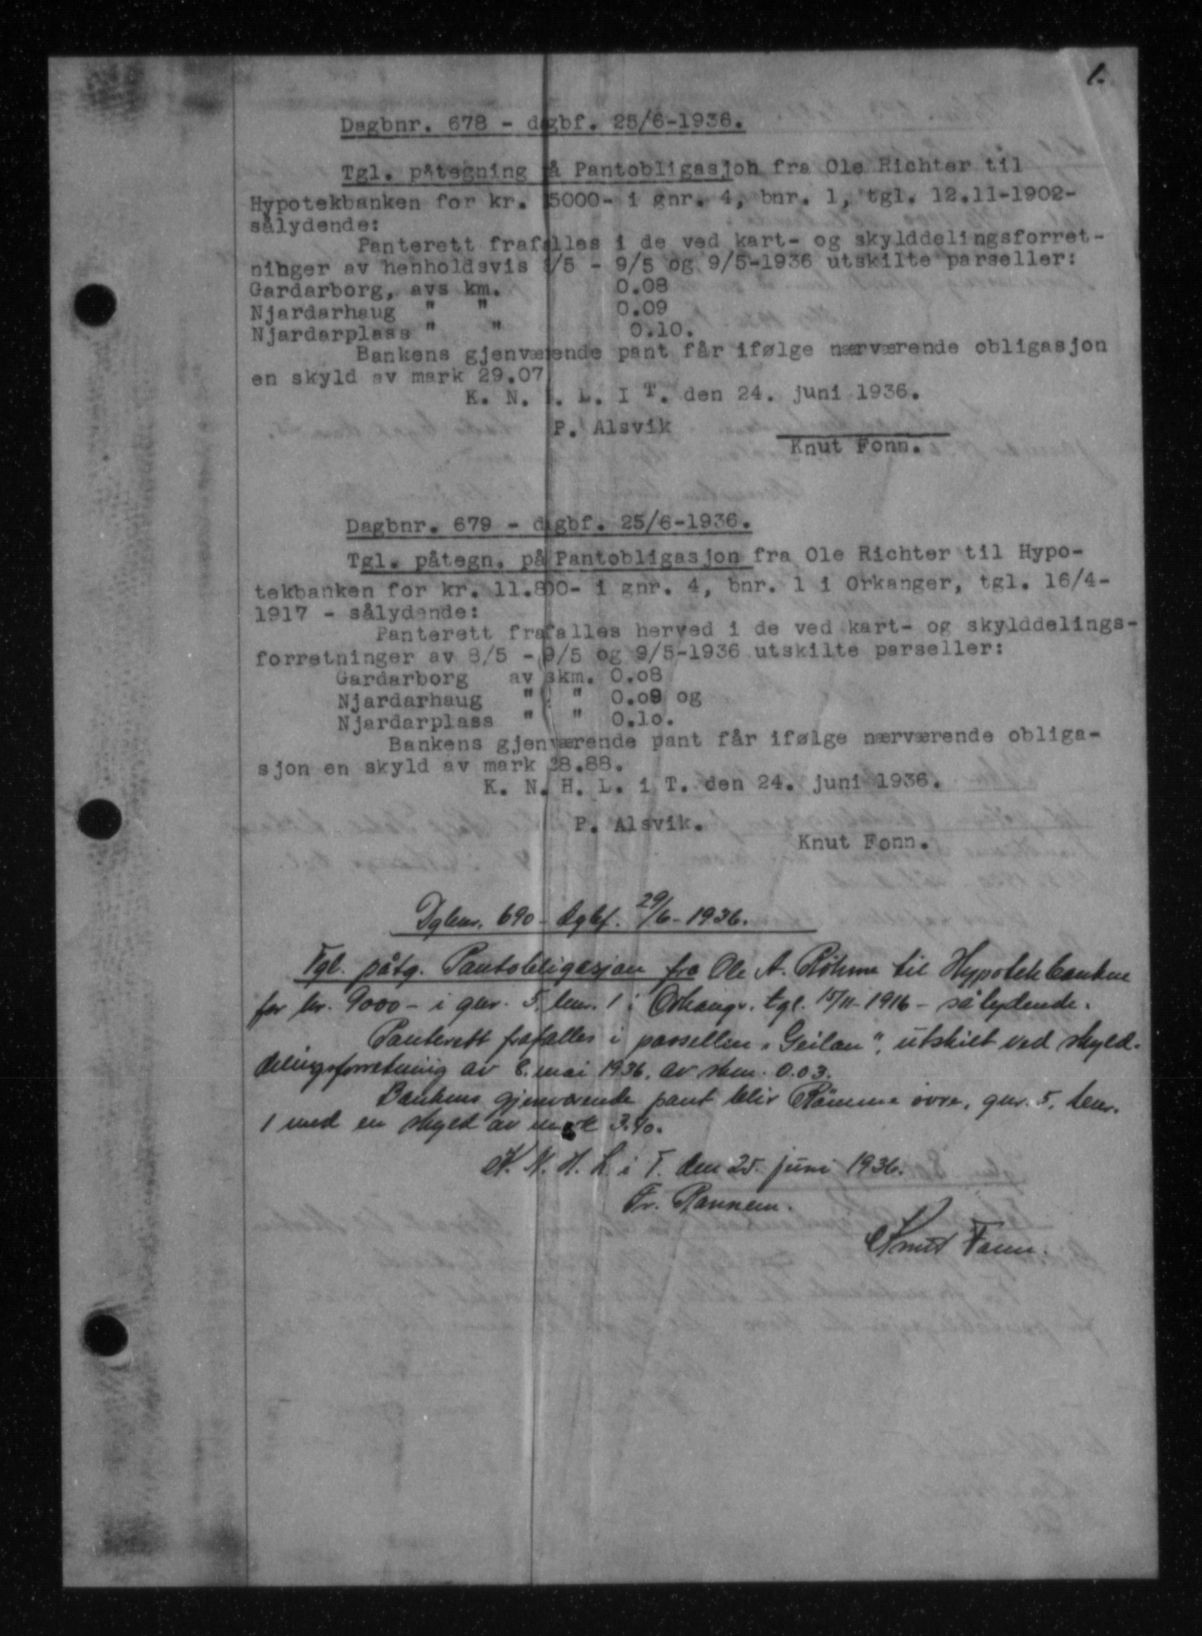 1.
Dagbnr. 678 - dagbf. 25/6-1936.
Tgl. påtegning på Pantobligasjon fra Ole Richter til
Hypotekbanken for kr. 5000- i gnr. 4, bnr. 1, tgl. 12.11-1902-
sålydende:
Panterett frafalles i de ved kart- og skylddelingsforret-
ninger av henholdsvis 8/5 - 9/5 og 9/5-1936 utskilte parseller:
Gardarborg, avs km. 0.08
Njardarhaug " " 0.09
Njardarplass " " 0.10.
Bankens gjenværende pant får ifølge nærværende obligasjon
en skyld av mark 29.07
K. N. H. L. I T. den 24. juni 1936.
P. Alsvik
Knut Fonn.
Dagbnr. 679 - dagbf. 25/6-1936.
Tgl. påtegn. på Pantobligasjon fra Ole Richter til Hypo-
tekbanken for kr. 11.800- i gnr. 4, bnr. 1 i Orkanger, tgl. 16/4-
1917 - sålydende:
Panterett frafalles herved i de ved kart- og skylddelings-
forretninger av 8/5 - 9/5 og 9/5-1936 utskilte parseller:
Gardarborg av skm. 0.08
Njardarhaug " " 0.09 og
Njardarplass " " 0.10.
Bankens gjenværende pant får ifølge nærværende obliga-
sjon en skyld av mark 28.88.
K. N. H. L. i T. den 24. juni 1936.
P. Alsvik.
Knut Fonn.
Dgbnr. 690 - dgbf. 29/6-1936.
Tgl. påtg. Pantobligasjon fra Ole A. Röhme til Hypotekbanken
for kr. 9000- i gnr. 5, bnr. 1 i Orkang. tgl. 15/11-1916 - sålydende.
Panterett frafalles i parsellen "Geilan", utskilt ved skyld-
delingsforretning av 8. mai 1936. av skm. 0.03.
Bankens gjenværende pant blir Römme övre, gnr. 5, bnr.
1 med en skyld av mark 3.40.
K. N. H. L. i T. den 25. juni 1936.
Fr. Rannem.
Knut Fonn.